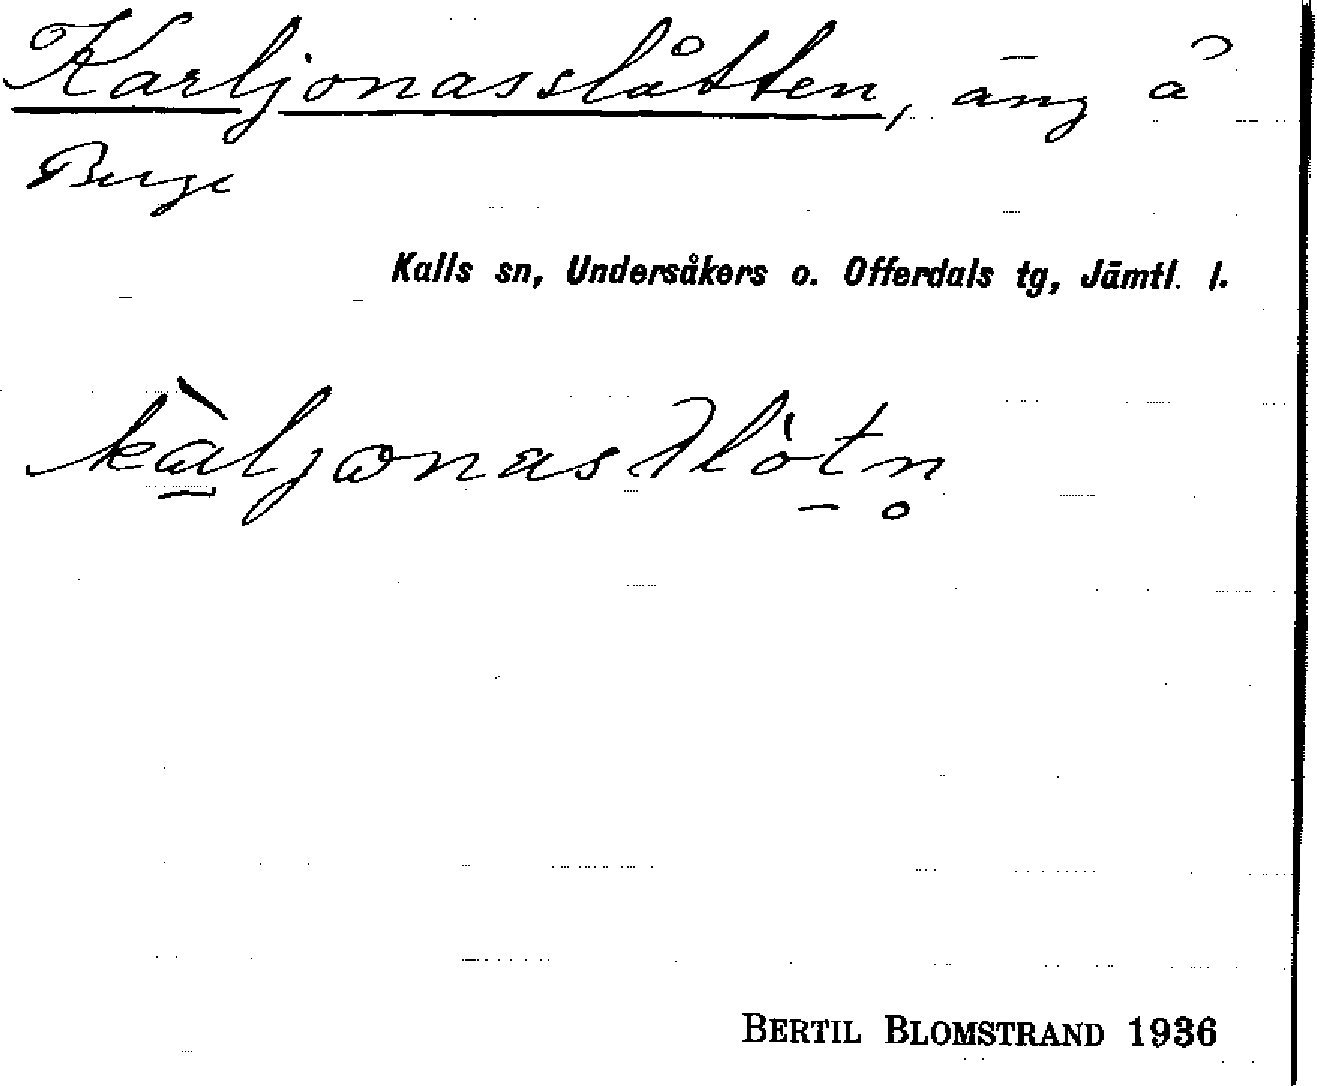 Karljonasslåtten, äng å
Berge
Kalls sn, Undersåkers o. Offerdals tg, Jämtl. l.
BERTIL BLOMSTRAND 1936